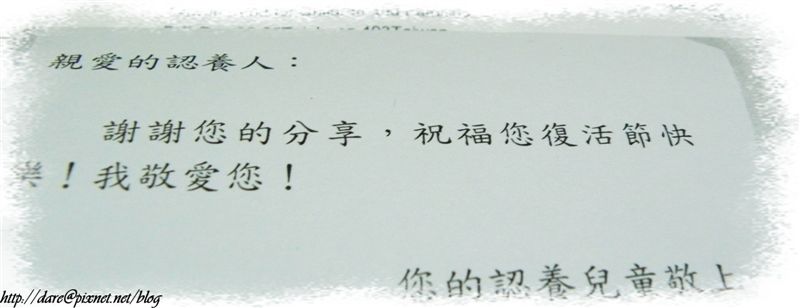 親愛的認養人：
謝謝您的分享，祝福您復活節快
樂！我敬愛您！
您的認養兒童敬上
http://dare@pixnet.net/blog